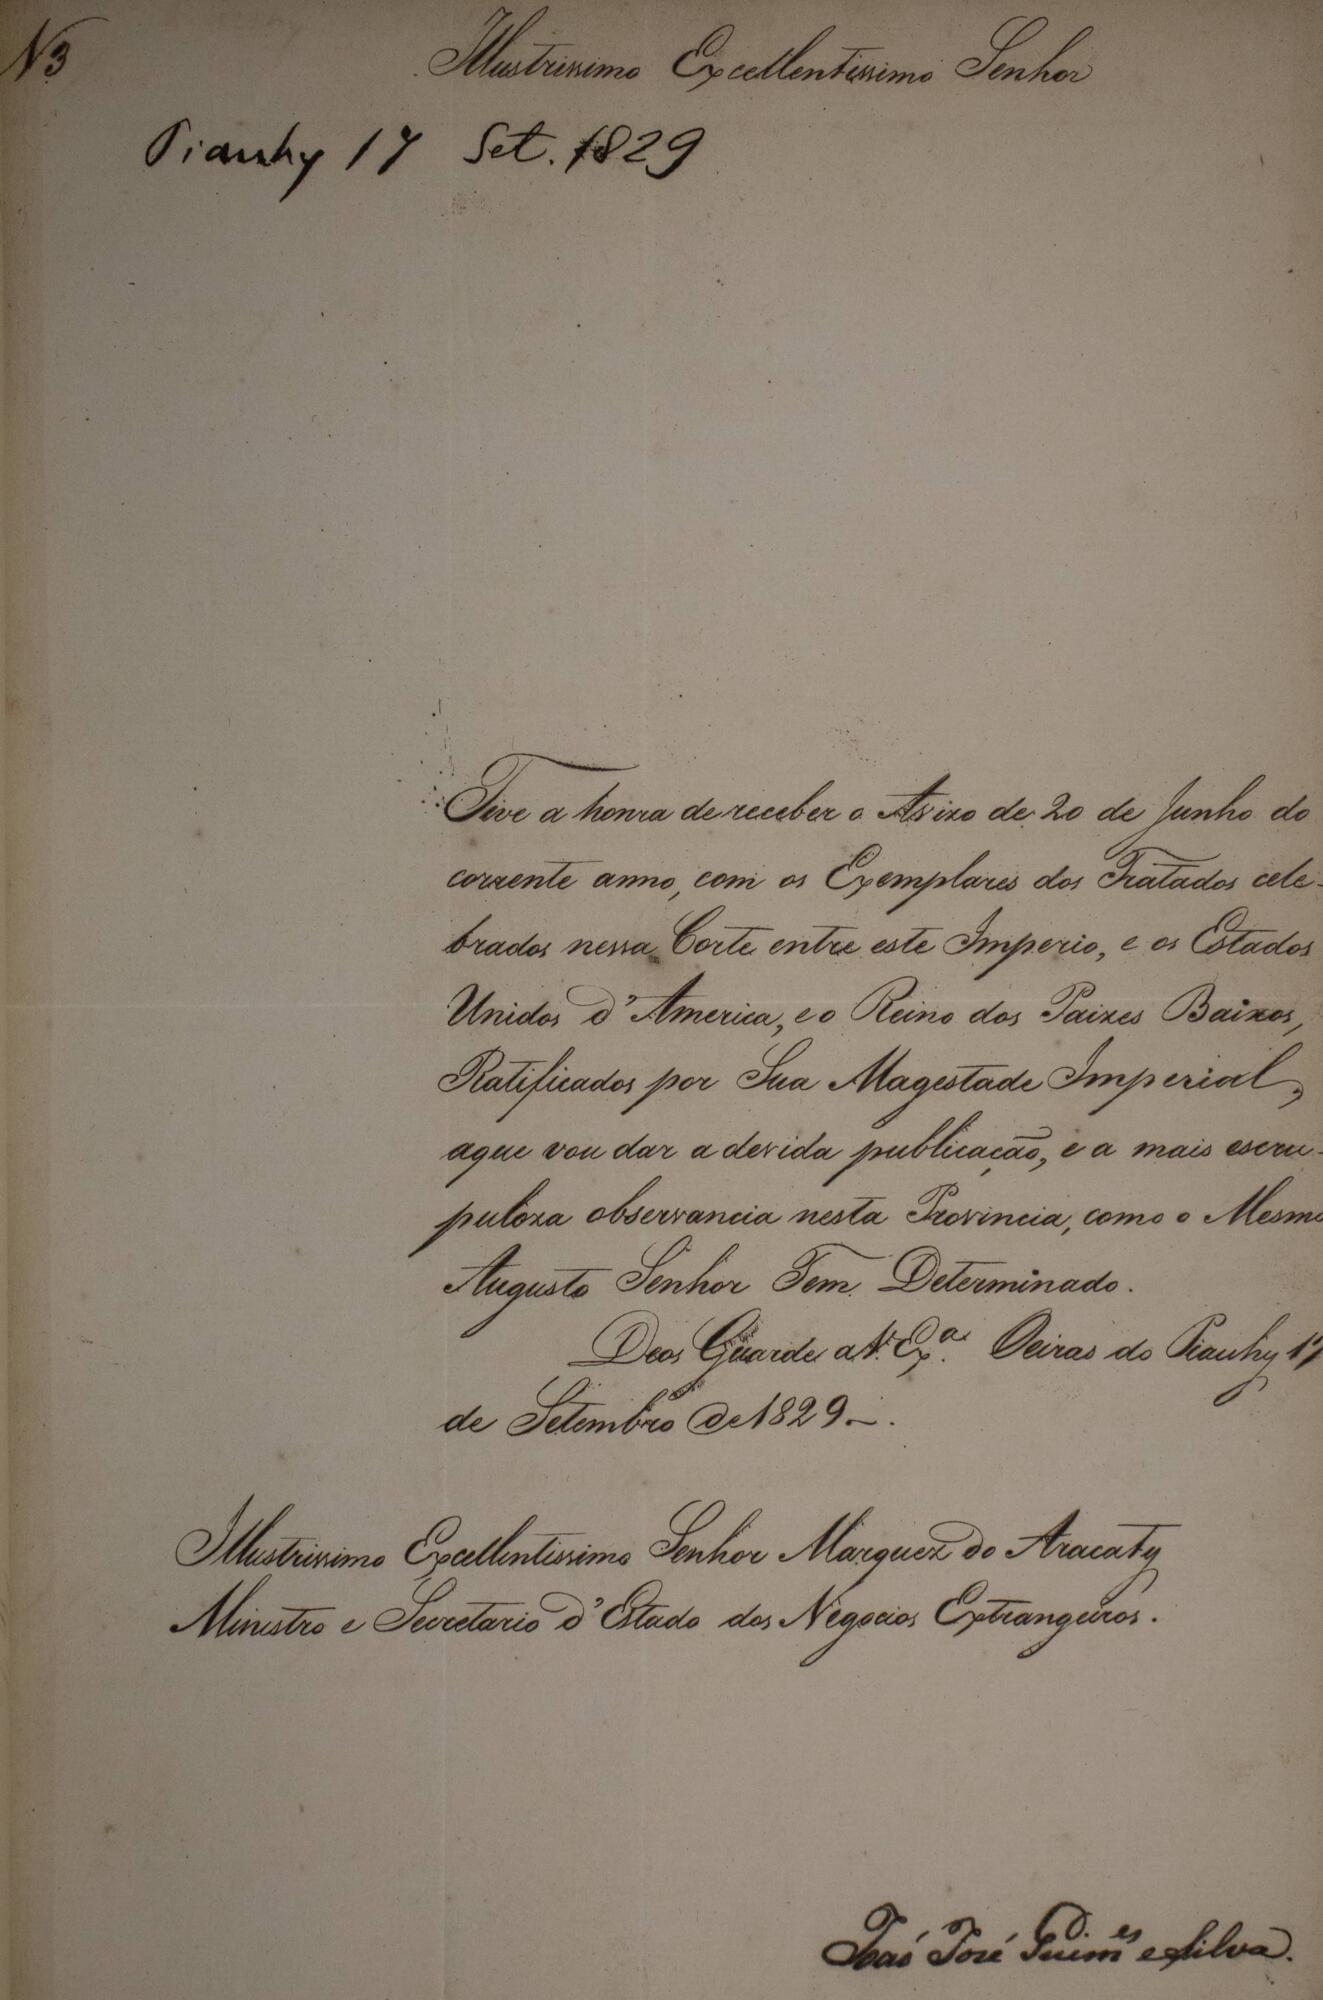 N3
Illustrissimo Excellentissimo Senhor
Piauhy 17 Set. 1829
Tive a honra de receber o Avizo de 20 de Junho do
corrente anno, com os Exemplares dos Tratados cele-
brados nessa Corte entre este Imperio, e os Estados
Unidos d'America, e o Reino dos Paizes Baixos,
Ratificados por Sua Magestade Imperial,
aque vou dar a devida publicação, e a mais escru-
puloza observancia nesta Provincia, como o Mesmo
Augusto Senhor Tem Determinado.
Deos Guarde a V. Exª. Oeiras do Piauhy 17
de Setembro de 1829_.
Illustrissimo Excellentissimo Senhor Marquez do Aracaty
Ministro e Secretario d'Estado dos Negocios Extrangeiros.
João José Guim.es e Silva.